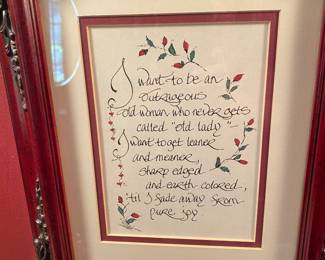 I want to be an
outrageous
old woman who never gets
called "old lady"—
I want to get leaner
and meaner,
sharp edged
and earth colored,
'til I fade away from
pure joy